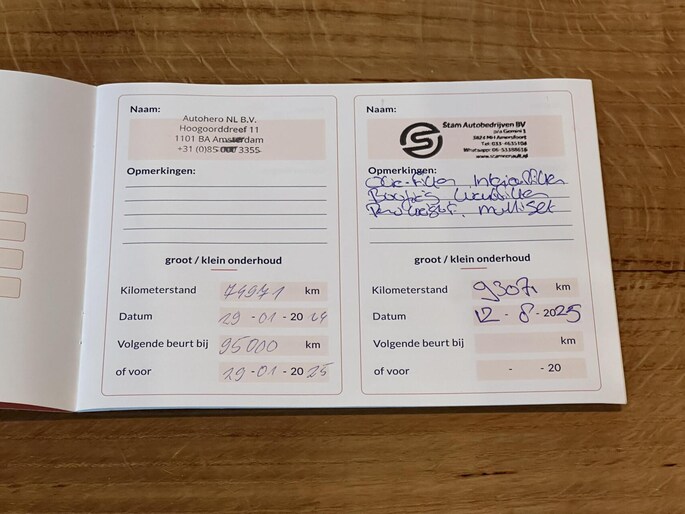 Naam:
Autohero NL B.V.
Hoogoorddreef 11
1101 BA Amsterdam
+31 (0)85 3355
Opmerkingen:
groot / klein onderhoud
Kilometerstand 74971 km
Datum 29 - 01 - 20 24
Volgende beurt bij 95000 km
of voor 29 - 01 - 20 25
Naam:
Stam Autobedrijven BV
3824 MH Amersfoort
Tel: 033-4635104
Whatsapp: 06-53398618
www.stamrenault.nl
Opmerkingen:
Olie-filter, Interieurfilter
Bougies, Luchtfilter
multiset
groot / klein onderhoud
Kilometerstand 93071 km
Datum 12 - 8 - 2025
Volgende beurt bij km
of voor - - 20